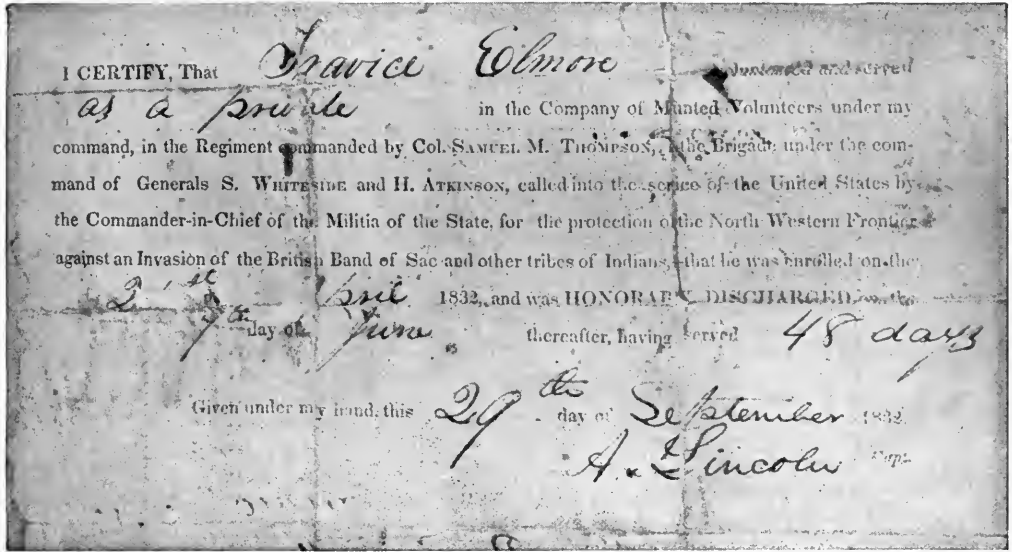 I CERTIFY, That Travice Elmore volunteered and served
as a private in the Company of Munted Volunteers under my
command, in the Regiment commanded by Col. SAMUEL M. THOMPSON, the Brigade under the com-
mand of Generals S. WHITESIDE and H. ATKINSON, called into the service of the United States by
the Commander-in-Chief of the Militia of the State, for the protection of the North Western Frontier
against an Invasion of the British Band of Sac and other tribes of Indians, that he was enrolled on the
21st April 1832, and was HONORABLY DISCHARGED on the
7th day of June thereafter, having served 48 days
Given under my hand, this 29th day of September 1832.
A. Lincoln Capt.